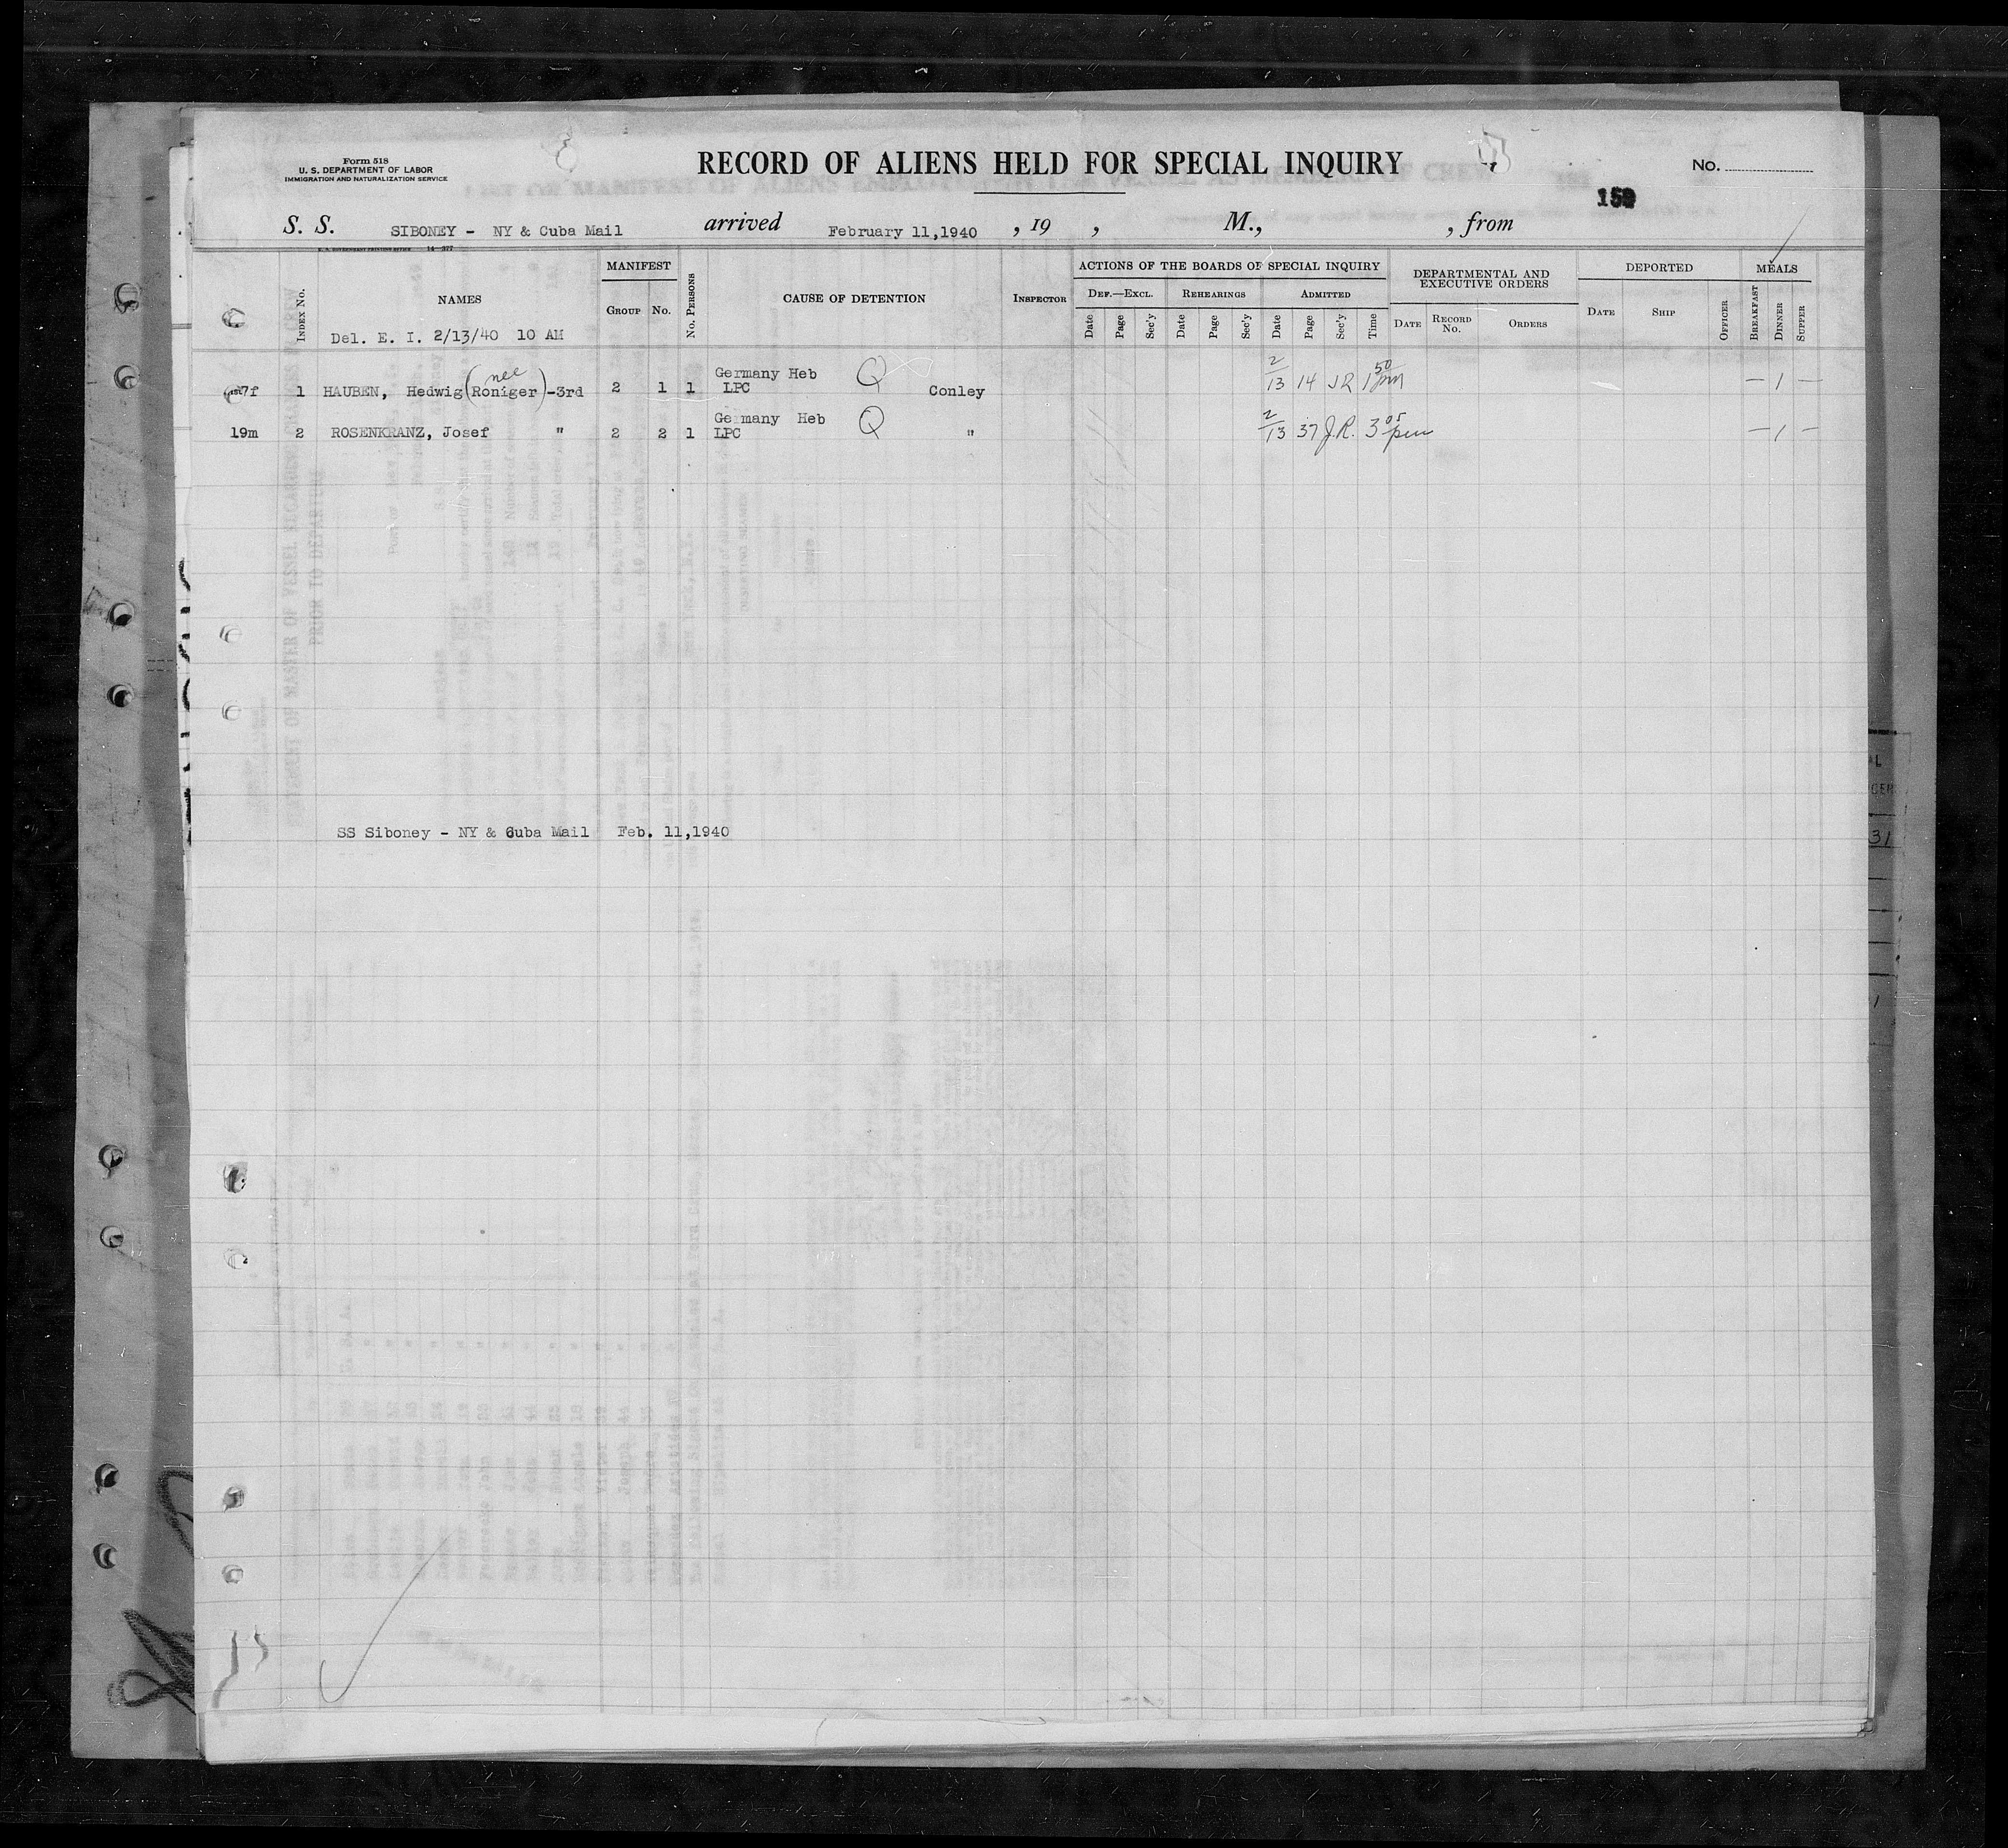 Form 518
U. S. DEPARTMENT OF LABOR
IMMIGRATION AND NATURALIZATION SERVICE
RECORD OF ALIENS HELD FOR SPECIAL INQUIRY
No.
159
S. S. SIBONEY - NY & Cuba Mail arrived February 11,1940 , 19 , M., , from
U. S. GOVERNMENT PRINTING OFFICE 14—377
INDEX No. NAMES MANIFEST GROUP No. No. PERSONS CAUSE OF DETENTION INSPECTOR ACTIONS OF THE BOARDS OF SPECIAL INQUIRY DEPARTMENTAL AND EXECUTIVE ORDERS DEPORTED MEALS
DEF.—EXCL. REHEARINGS ADMITTED
Date Page Sec'y Date Page Sec'y Date Page Sec'y Time DATE RECORD No. ORDERS DATE SHIP OFFICER BREAKFAST DINNER SUPPER
Del. E. I. 2/13/40 10 AM
7f 1 HAUBEN, Hedwig (nee Roniger)-3rd 2 1 1 Germany Heb LPC Q Conley 2/13 14 JR 1 50 pm — 1 —
19m 2 ROSENKRANZ, Josef " 2 2 1 Germany Heb LPC Q " 2/13 37 J.R. 3 05 pm — 1 —
SS Siboney - NY & Cuba Mail Feb. 11,1940